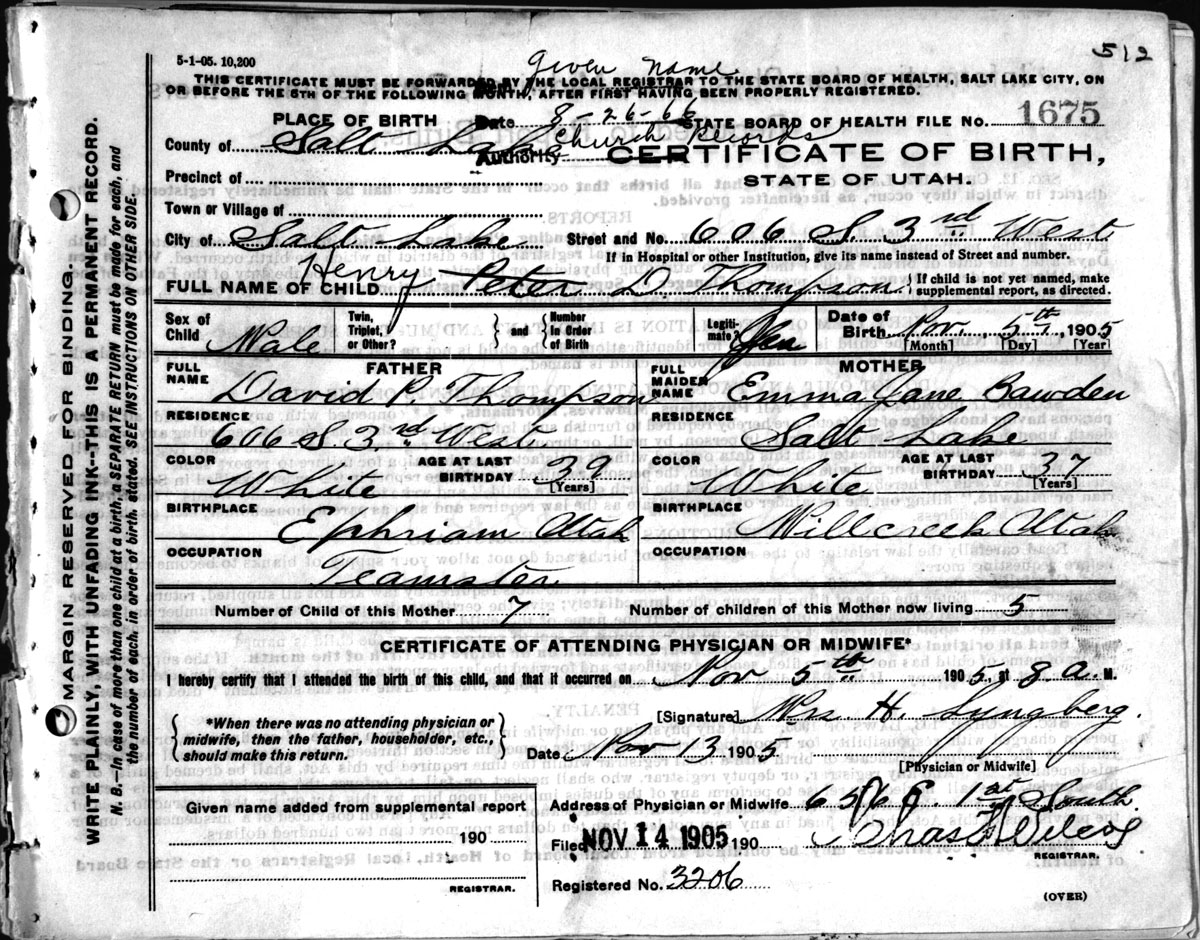 512
5-1-05. 10,200
Given name
THIS CERTIFICATE MUST BE FORWARDED BY THE LOCAL REGISTRAR TO THE STATE BOARD OF HEALTH, SALT LAKE CITY, ON
OR BEFORE THE 5TH OF THE FOLLOWING MONTH, AFTER FIRST HAVING BEEN PROPERLY REGISTERED.
PLACE OF BIRTH Date 8-26-66 STATE BOARD OF HEALTH FILE NO. 1675
County of Salt Lake Authority Church Records CERTIFICATE OF BIRTH,
Precinct of STATE OF UTAH.
Town or Village of
City of Salt Lake Street and No. 606 S. 3rd West
If in Hospital or other Institution, give its name instead of Street and number.
FULL NAME OF CHILD Henry Peter D. Thompson } If child is not yet named, make supplemental report, as directed.
Sex of Child Male Twin, Triplet, or Other? } and { Number In Order of Birth Legiti- mate? Yes Date of Birth Nov. 5th 1905
[Month] [Day] [Year]
FATHER MOTHER
FULL NAME David P. Thompson FULL MAIDEN NAME Emma Jane Bawden
RESIDENCE 606 S. 3rd West RESIDENCE Salt Lake
COLOR White AGE AT LAST BIRTHDAY 39 [Years] COLOR White AGE AT LAST BIRTHDAY 37 [Years]
BIRTHPLACE Ephriam Utah BIRTHPLACE Millcreek Utah
OCCUPATION Teamster OCCUPATION
Number of Child of this Mother 7 Number of children of this Mother now living 5
CERTIFICATE OF ATTENDING PHYSICIAN OR MIDWIFE*
I hereby certify that I attended the birth of this child, and that it occurred on Nov 5th 1905, at 8 a. M.
{ *When there was no attending physician or midwife, then the father, householder, etc., should make this return. }
[Signature] Mrs H. Lyngberg.
Date Nov 13 1905
[Physician or Midwife]
Given name added from supplemental report
190
REGISTRAR.
Address of Physician or Midwife 656 E. 1st South
Filed NOV 14 1905 190 Chas Wilcox
REGISTRAR.
Registered No. 3206
(OVER)
MARGIN RESERVED FOR BINDING.
WRITE PLAINLY, WITH UNFADING INK--THIS IS A PERMANENT RECORD.
N. B.--In case of more than one child at a birth, a SEPARATE RETURN must be made for each, and
the number of each, in order of birth, stated. SEE INSTRUCTIONS ON OTHER SIDE.